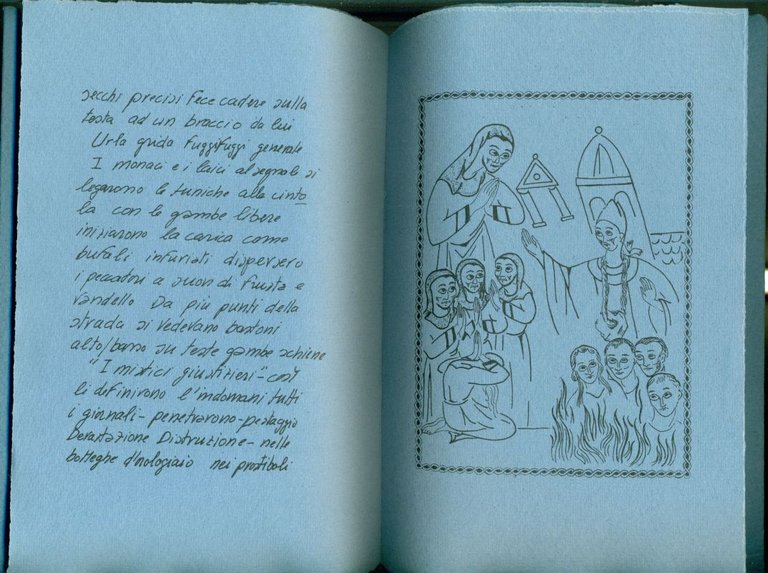 secchi precisi fece cadere sulla
testa ad un braccio da lui
Urla grida fuggifuggi generale
I monaci e i laici al segnale si
legarono le tuniche alla cinto
la con le gambe libere
iniziarono la carica come
bufali infuriati dispersero
i peccatori a suon di frusta e
randello Da più punti della
strada si vedevano bastoni
alto/basso su teste gambe schiene
"I mistici giustizieri" - così
li definirono l'indomani tutti
i giornali - penetrarono - pestaggio
Devastazione Distruzione - nelle
botteghe d'orologiaio nei prostiboli